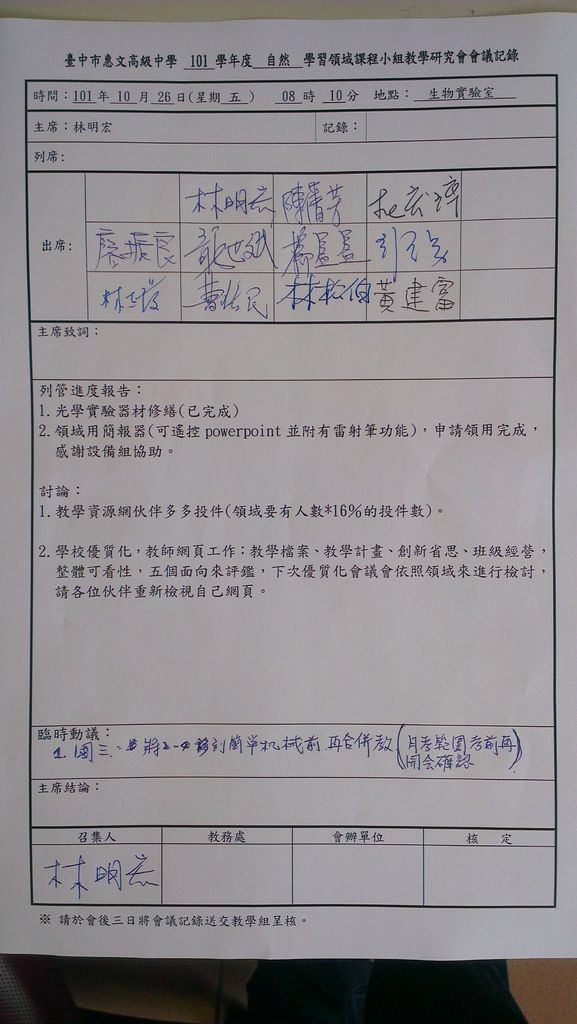 臺中市惠文高級中學 101 學年度 自然 學習領域課程小組教學研究會會議記錄
時間：101 年 10 月 26 日(星期 五 ) 08 時 10分 地點： 生物實驗室
主席：林明宏 記錄：
列席:
出席:
林明宏 陳菁芳
廖振良
林松伯 黃建富
主席致詞：
列管進度報告：
1.光學實驗器材修繕(已完成)
2.領域用簡報器(可遙控 powerpoint 並附有雷射筆功能)，申請領用完成，
感謝設備組協助。
討論：
1.教學資源網伙伴多多投件(領域要有人數*16%的投件數)。
2.學校優質化，教師網頁工作：教學檔案、教學計畫、創新省思、班級經營，
整體可看性，五個面向來評鑑，下次優質化會議會依照領域來進行檢討，
請各位伙伴重新檢視自己網頁。
臨時動議：
1. 國三 將2-4移到簡單机械前 再合併教(月考範圍考前再
開会確認)
主席結論：
召集人 教務處 會辦單位 核 定
林明宏
※ 請於會後三日將會議記錄送交教學組呈核。